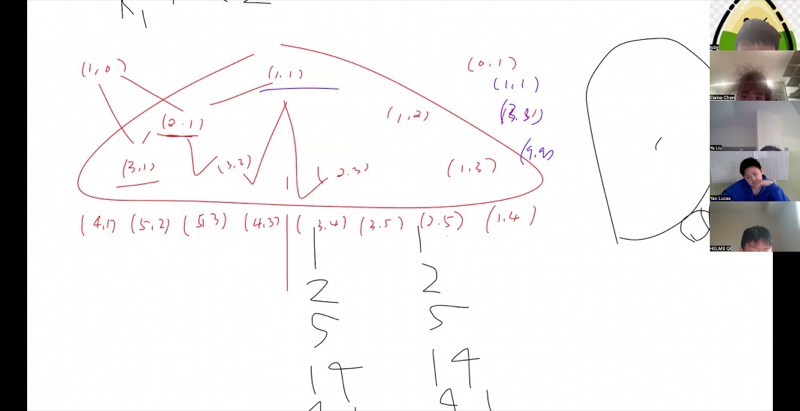 (1,0)
(1,1)
(0,1)
(1,1)
(2,1)
(1,2)
(3,3)
(3,1)
(3,2)
(2,3)
(1,3)
(9,9)
(4,1) (5,2) (5,3) (4,3) (3,4) (3,5) (2,5) (1,4)
1 1
2 2
5 5
14 14
Elaine Chen
Ye Liu
Yao Lucas
HELMS QI